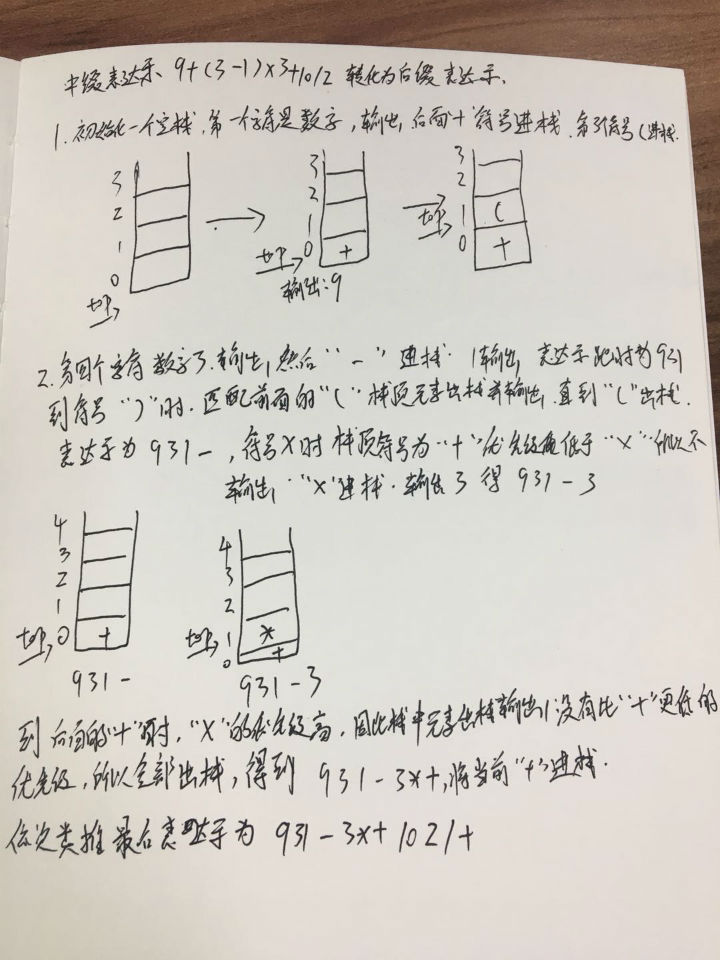 中缀表达式、9+(3-1)×3+10/2 转化为后缀表达式.
1. 初始化一个空栈.第一个字符是数字,输出,后面"+"符号进栈.第3个符号(进栈.
3 2 1 0 top
3 2 1 0 top +
输出:9
3 2 1 0 top ( +
2. 第四个字符 数字3.输出,然后"-"进栈. 1输出, 表达式此时为931
到符号")"时.匹配前面的"("栈顶元素出栈并输出,直到"("出栈.
表达式为 931-,符号×时 栈顶符号为"+"优先级低于"×"所以不
输出,"×"进栈.输出3 得 931-3
4 3 2 1 0 top +
931-
4 3 2 1 0 top * +
931-3
到后面的"+"时,"×"的优先级高,因此栈中元素出栈输出(没有比"+"更低的
优先级,所以全部出栈,得到 931-3×+,将当前"+"进栈.
依次类推最后表达式为 931-3×+102/+